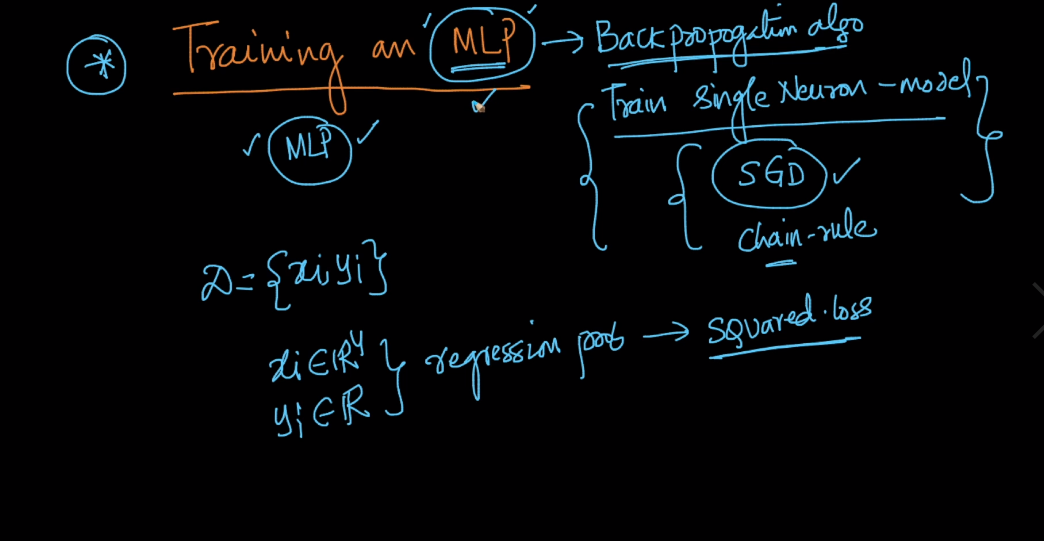 * Training an MLP → Backpropogation algo
Train single Neuron-model
MLP
SGD
chain-rule
D = {xi, yi}
xi ∈ R⁴
yi ∈ R
} regression prob → squared.loss